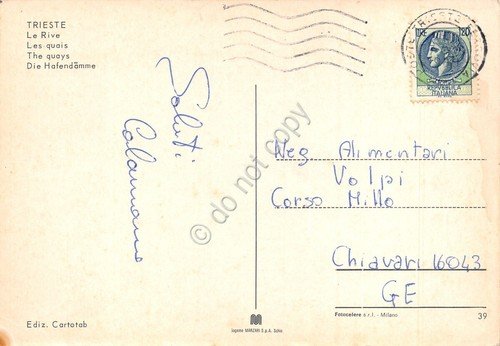 TRIESTE
Le Rive
Les quais
The quays
Die Hafendämme
Saluti
Neg. Alimentari
Volpi
Corso Millo
Chiavari 16043
GE
LIRE 120
REPVBBLICA
ITALIANA
do not copy
Ediz. Cartotab
Fotocelere s.r.l. - Milano
39